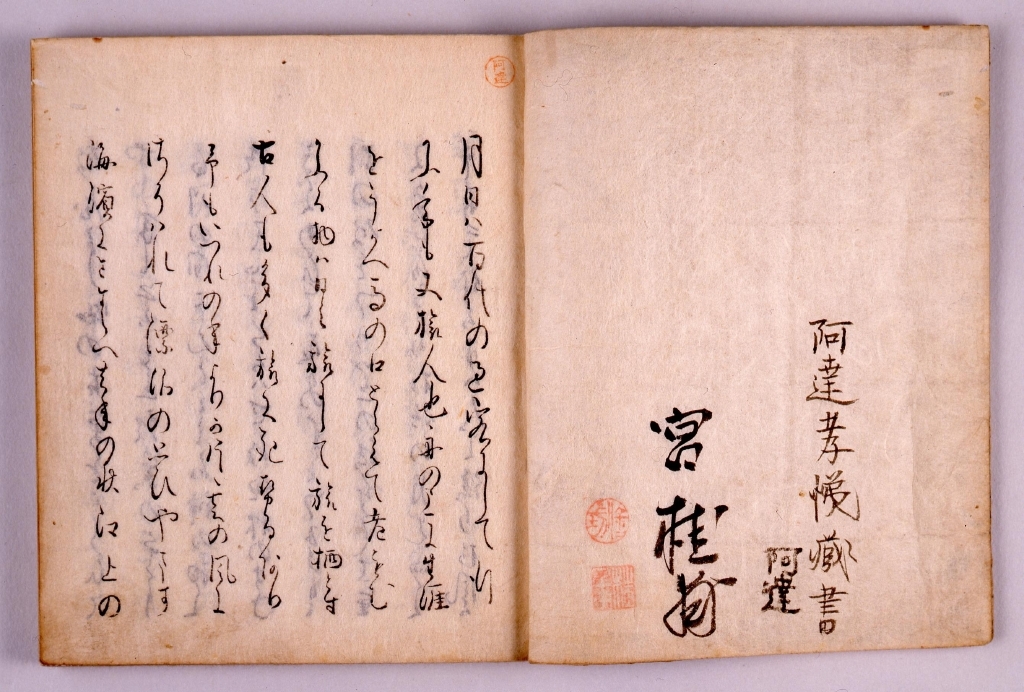 阿達孝悌藏書
阿達
宮桂
阿達
月日ハ百代の過客にして行
かふ年も又旅人也舟の上に生涯
をうかへ馬の口とらえて老をむ
かふる物ハ日々旅にして旅を栖とす
古人も多く旅に死せるあり
予もいつれの年よりか片雲の風に
さそハれて漂泊の思ひやます
海濱にさすらへ去年の秋江上の